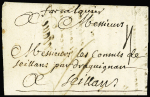 Forcalquier
Messieurs
Messieurs les Consuls de
Seillans par Draguignan
Seillans